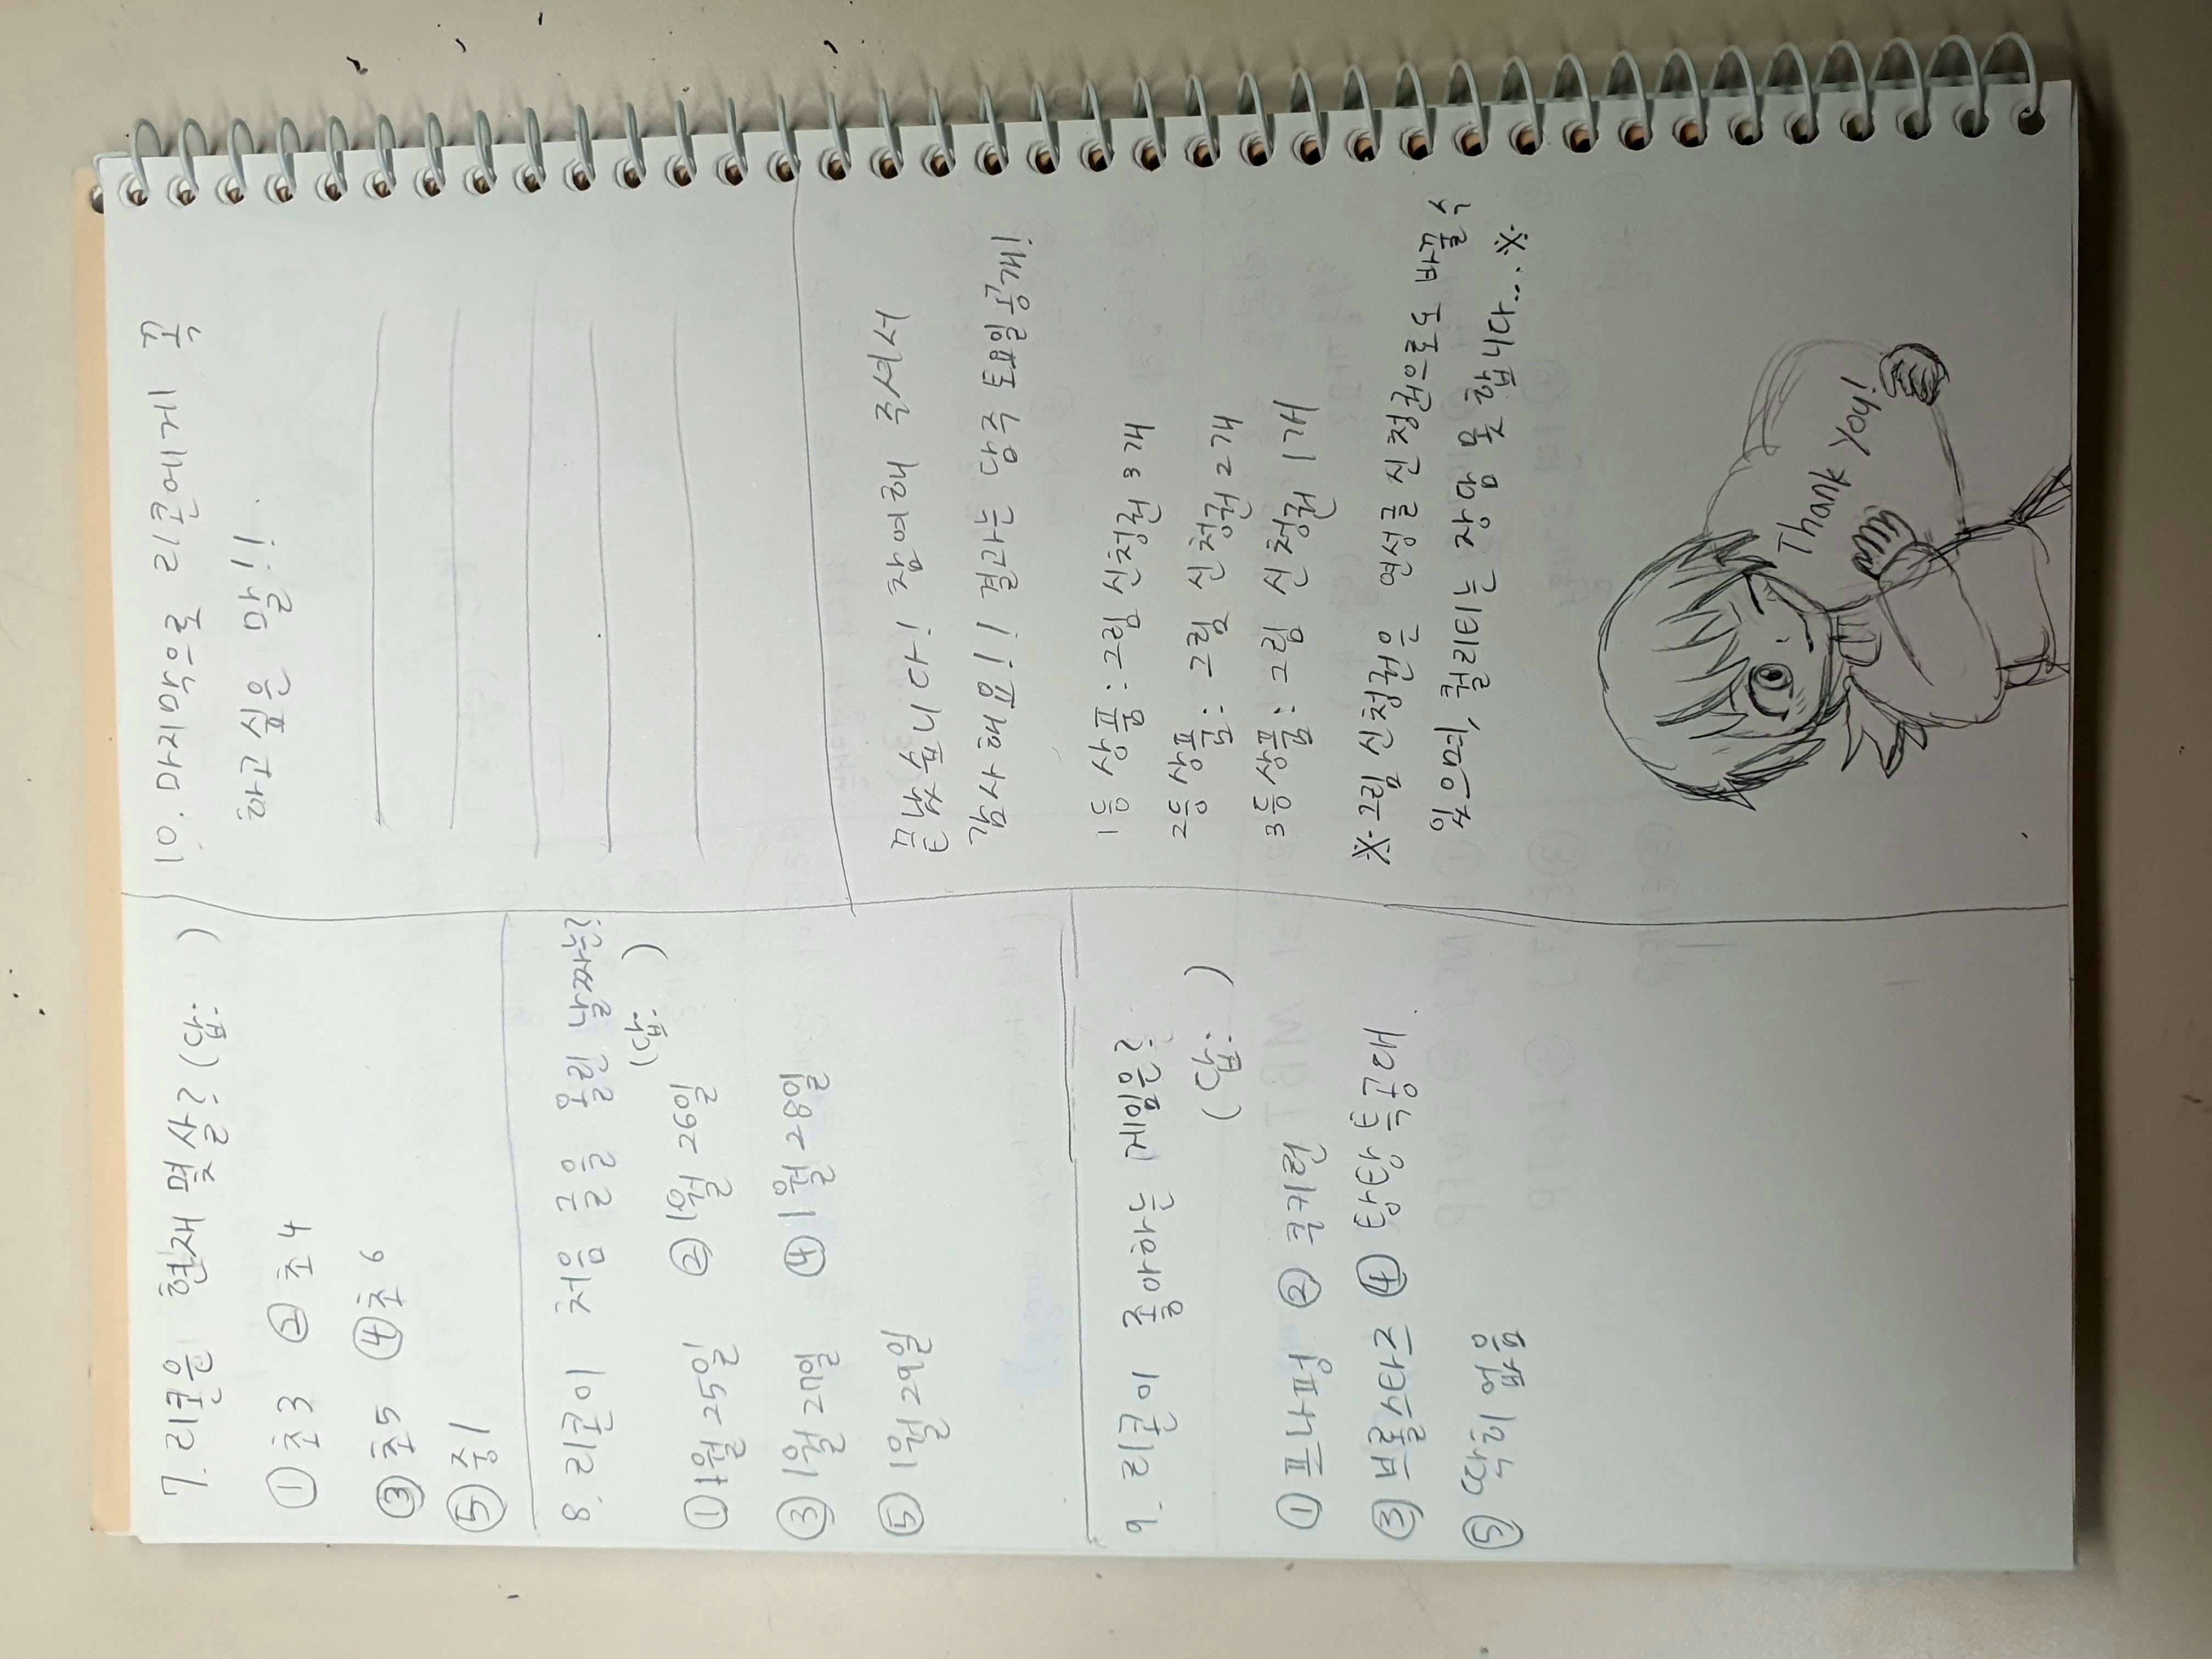 7. 리쿤은 현재 몇살? (답:    )
① 초3 ② 초4
③ 초5 ④ 초6
⑤ 중1
8. 리쿤이 처음 글을 올린 날짜는?
(답:    )
① 1월 25일 ② 1월 26일
③ 1월 27일 ④ 1월 28일
⑤ 1월 29일
9. 리쿤이 좋아하는 게임은?
(답:    )
① 프나펑 ② 쿠키런
③ 브롤스타그 ④ 탕탕 특공대
⑤ 딱히 없음
10. 마지막으로 리쿤에게 꼭
하고싶은 말!!
끝났숩니아! 참여해 주셔서
감사해요!! 결과는 담주 토요일공개!
1등 상품: 그림 신청권 3개
2등상품: 그림 신청권 2개
3등상품: 그림 신청권 1개
※그림 신청권은 연성글 신청권으로도 바꿀 수
있으며, 퀄리티는 장담 못 합니다...※
Thank You!